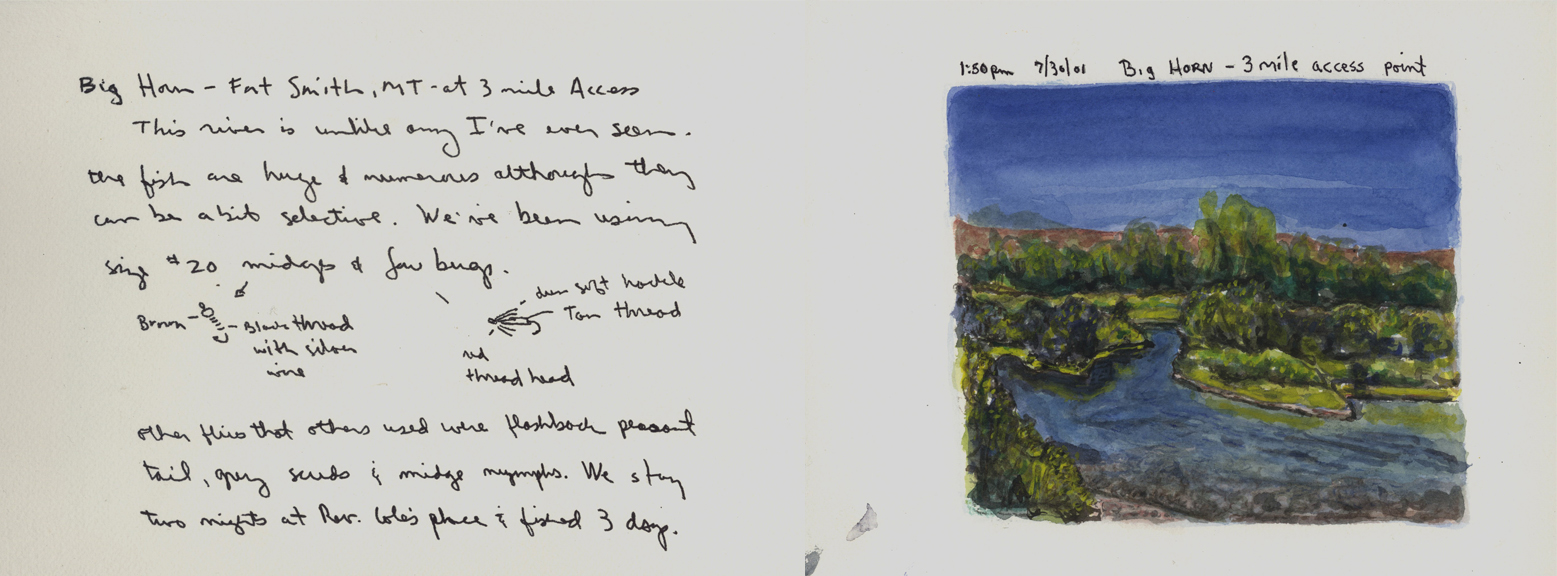 Big Horn - Fort Smith, MT - at 3 mile Access
This river is unlike any I've ever seen.
the fish are huge & numerous although they
can be a bit selective. We've been using
size #20 midges & few bugs.
dun soft hackle
Tan thread
Brown - Black thread
with silver
wire
red
thread head
other flies that others used were flashback peasant
tail, grey scuds & midge nymphs. We stay
two nights at Rev. Cole's place & fished 3 days.
1:50pm 7/30/01 Big Horn - 3 mile access point